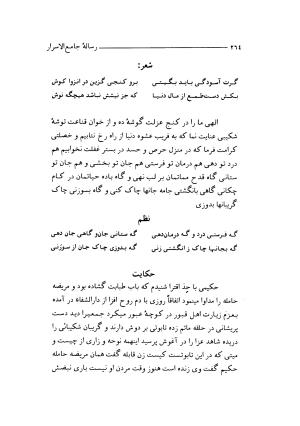 ۲۶۴ رسالهٔ جامع‌الاسرار
شعر:
گرت آسودگی باید بگیتی برو کنجی گزین در انزوا کوش
بکش دست طمع از مال دنیا که جز نیشش نباشد هیچگه نوش
الهی ما را در کنج عزلت گوشهٔ ده و از خوان قناعت توشهٔ
شکیبی عنایت نما که به فریب عشوه دنیا از راه رخ نتابیم و خصلتی
کرامت فرما که در منزل حرص و حسد در بستر غفلت نخوابیم هم
درد تو دهی هم درمان تو فرستی هم جان تو بخشی و هم جان تو
ستانی گاه قدح مماتمان بر لب نهی و گاه باده حیاتمان در کام
چکانی گاهی بانگشتی جامه جانها چاک کنی و گاه بسوزنی چاک
گریبانها بدوزی
نظم
گه فرستی درد و گه درمان دهی گه ستانی جان و گاهی جان دهی
گه بجانها چاک ز انگشتی زنی گه بدوزی چاک جان از سوزنی
حکایت
حکیمی با جذ اقترا شنیدم که باب طبابت گشاده بود و مریضه
حامله را مداوا مینمود اتفاقاً روزی با دم روح افزا از دارالشفاء در آمده
بعزم زیارت اهل قبور در کوچهٔ عبور میکرد جمعیرا دید دست
پریشانی در حلقه ماتم زده تابوتی بر دوش دارند و گریبان شکیبائی را
دریده شاهد عزا را در آغوش پرسید اینهمه نوحه و زاری از چیست و
میتی که در این تابوتست کیست زن قابله گفت همان مریضه حامله
حکیم گفت وی زنده است هنوز وقت مردن او نیست باری نبضش